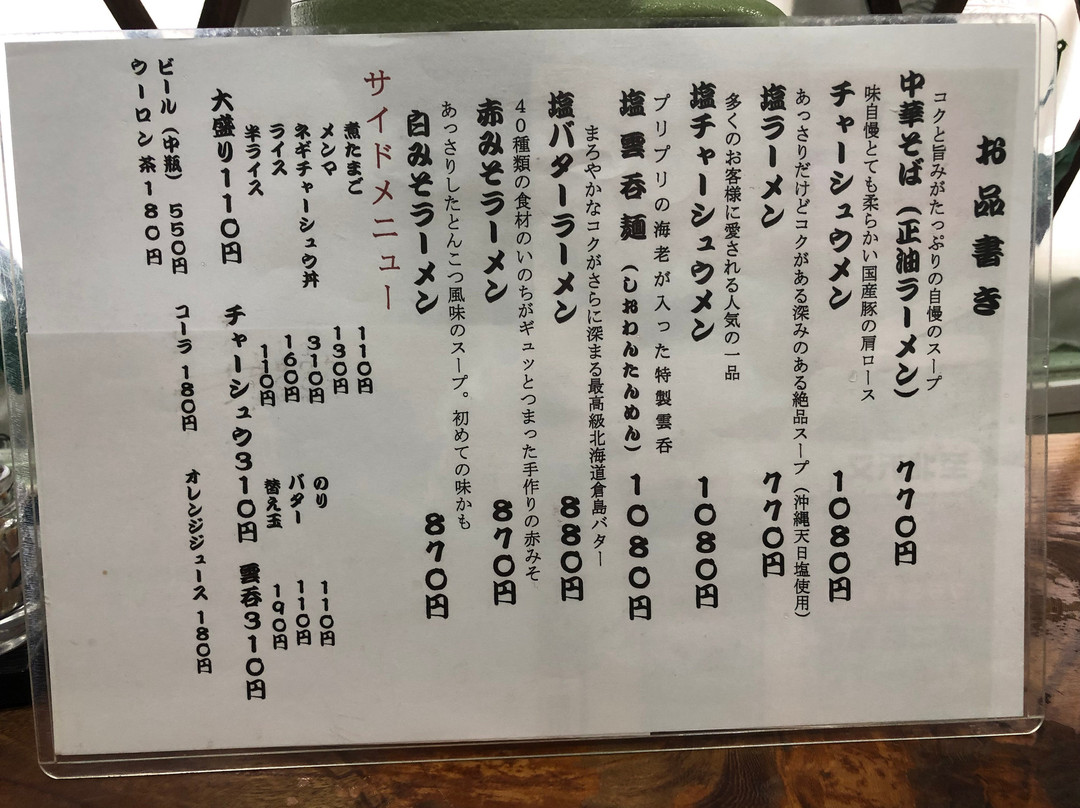 お品書き
コクと旨みがたっぷりの自慢のスープ
中華そば（正油ラーメン） 770円
味自慢とても柔らかい国産豚の肩ロース
チャーシュウメン 1080円
あっさりだけどコクがある深みのある絶品スープ（沖縄天日塩使用）
塩ラーメン 770円
多くのお客様に愛される人気の一品
塩チャーシュウメン 1080円
プリプリの海老が入った特製雲呑
塩雲呑麺（しおわんたんめん） 1080円
まろやかなコクがさらに深まる最高級北海道倉島バター
塩バターラーメン 880円
40種類の食材のいのちがギュッとつまった手作りの赤みそ
赤みそラーメン 870円
あっさりしたとんこつ風味のスープ。初めての味かも
白みそラーメン 870円
サイドメニュー
煮たまご 110円
メンマ 130円 のり 110円
ネギチャーシュウ丼 310円 バター 110円
ライス 160円 替え玉 190円
半ライス 110円
大盛り110円 チャーシュウ310円 雲呑310円
ビール（中瓶） 550円 コーラ 180円 オレンジジュース 180円
ウーロン茶180円